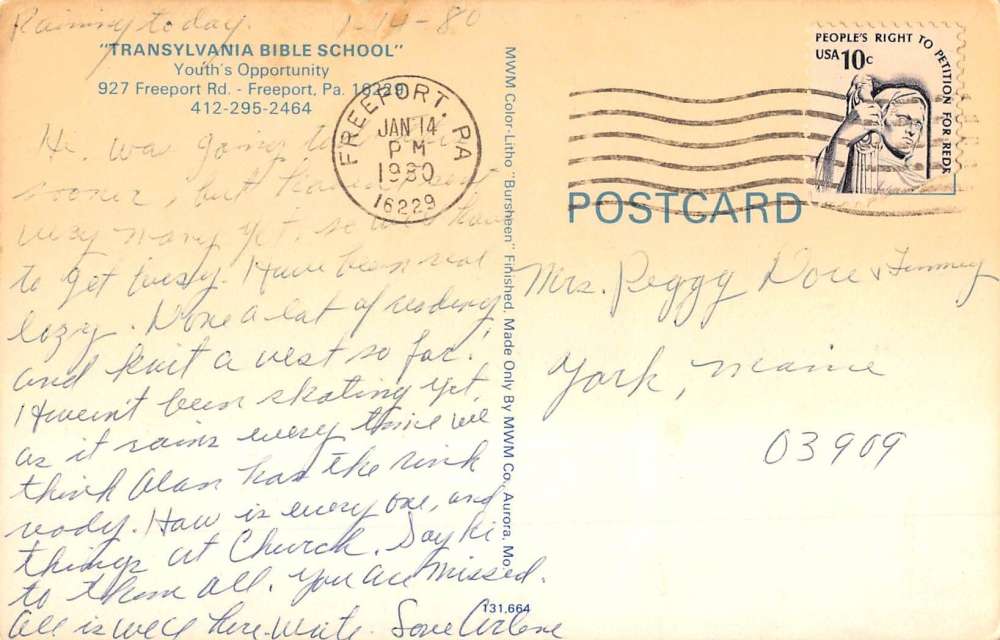 Raining today. 1-14-80
"TRANSYLVANIA BIBLE SCHOOL"
Youth's Opportunity
927 Freeport Rd. - Freeport, Pa. 16229
412-295-2464
Hi. was going to
sooner, but haven't
very many yet, so will have
to get busy. Have been real
lazy. Done a lot of reading,
and knit a vest so far.
Haven't been skating yet,
as it rains every time we
think Alan has the rink
ready. How is every one, and
things at Church. Say hi
to them all. You are missed.
All is well here. Write. Love Arlene
FREEPORT, PA
JAN 14
PM
1980
16229
MWM Color-Litho "Bursheen" Finished. Made Only By MWM Co., Aurora, Mo.
131,664
PEOPLE'S RIGHT TO PETITION FOR REDR
USA 10c
POSTCARD
Mrs. Peggy Dore &
York, Maine
03909